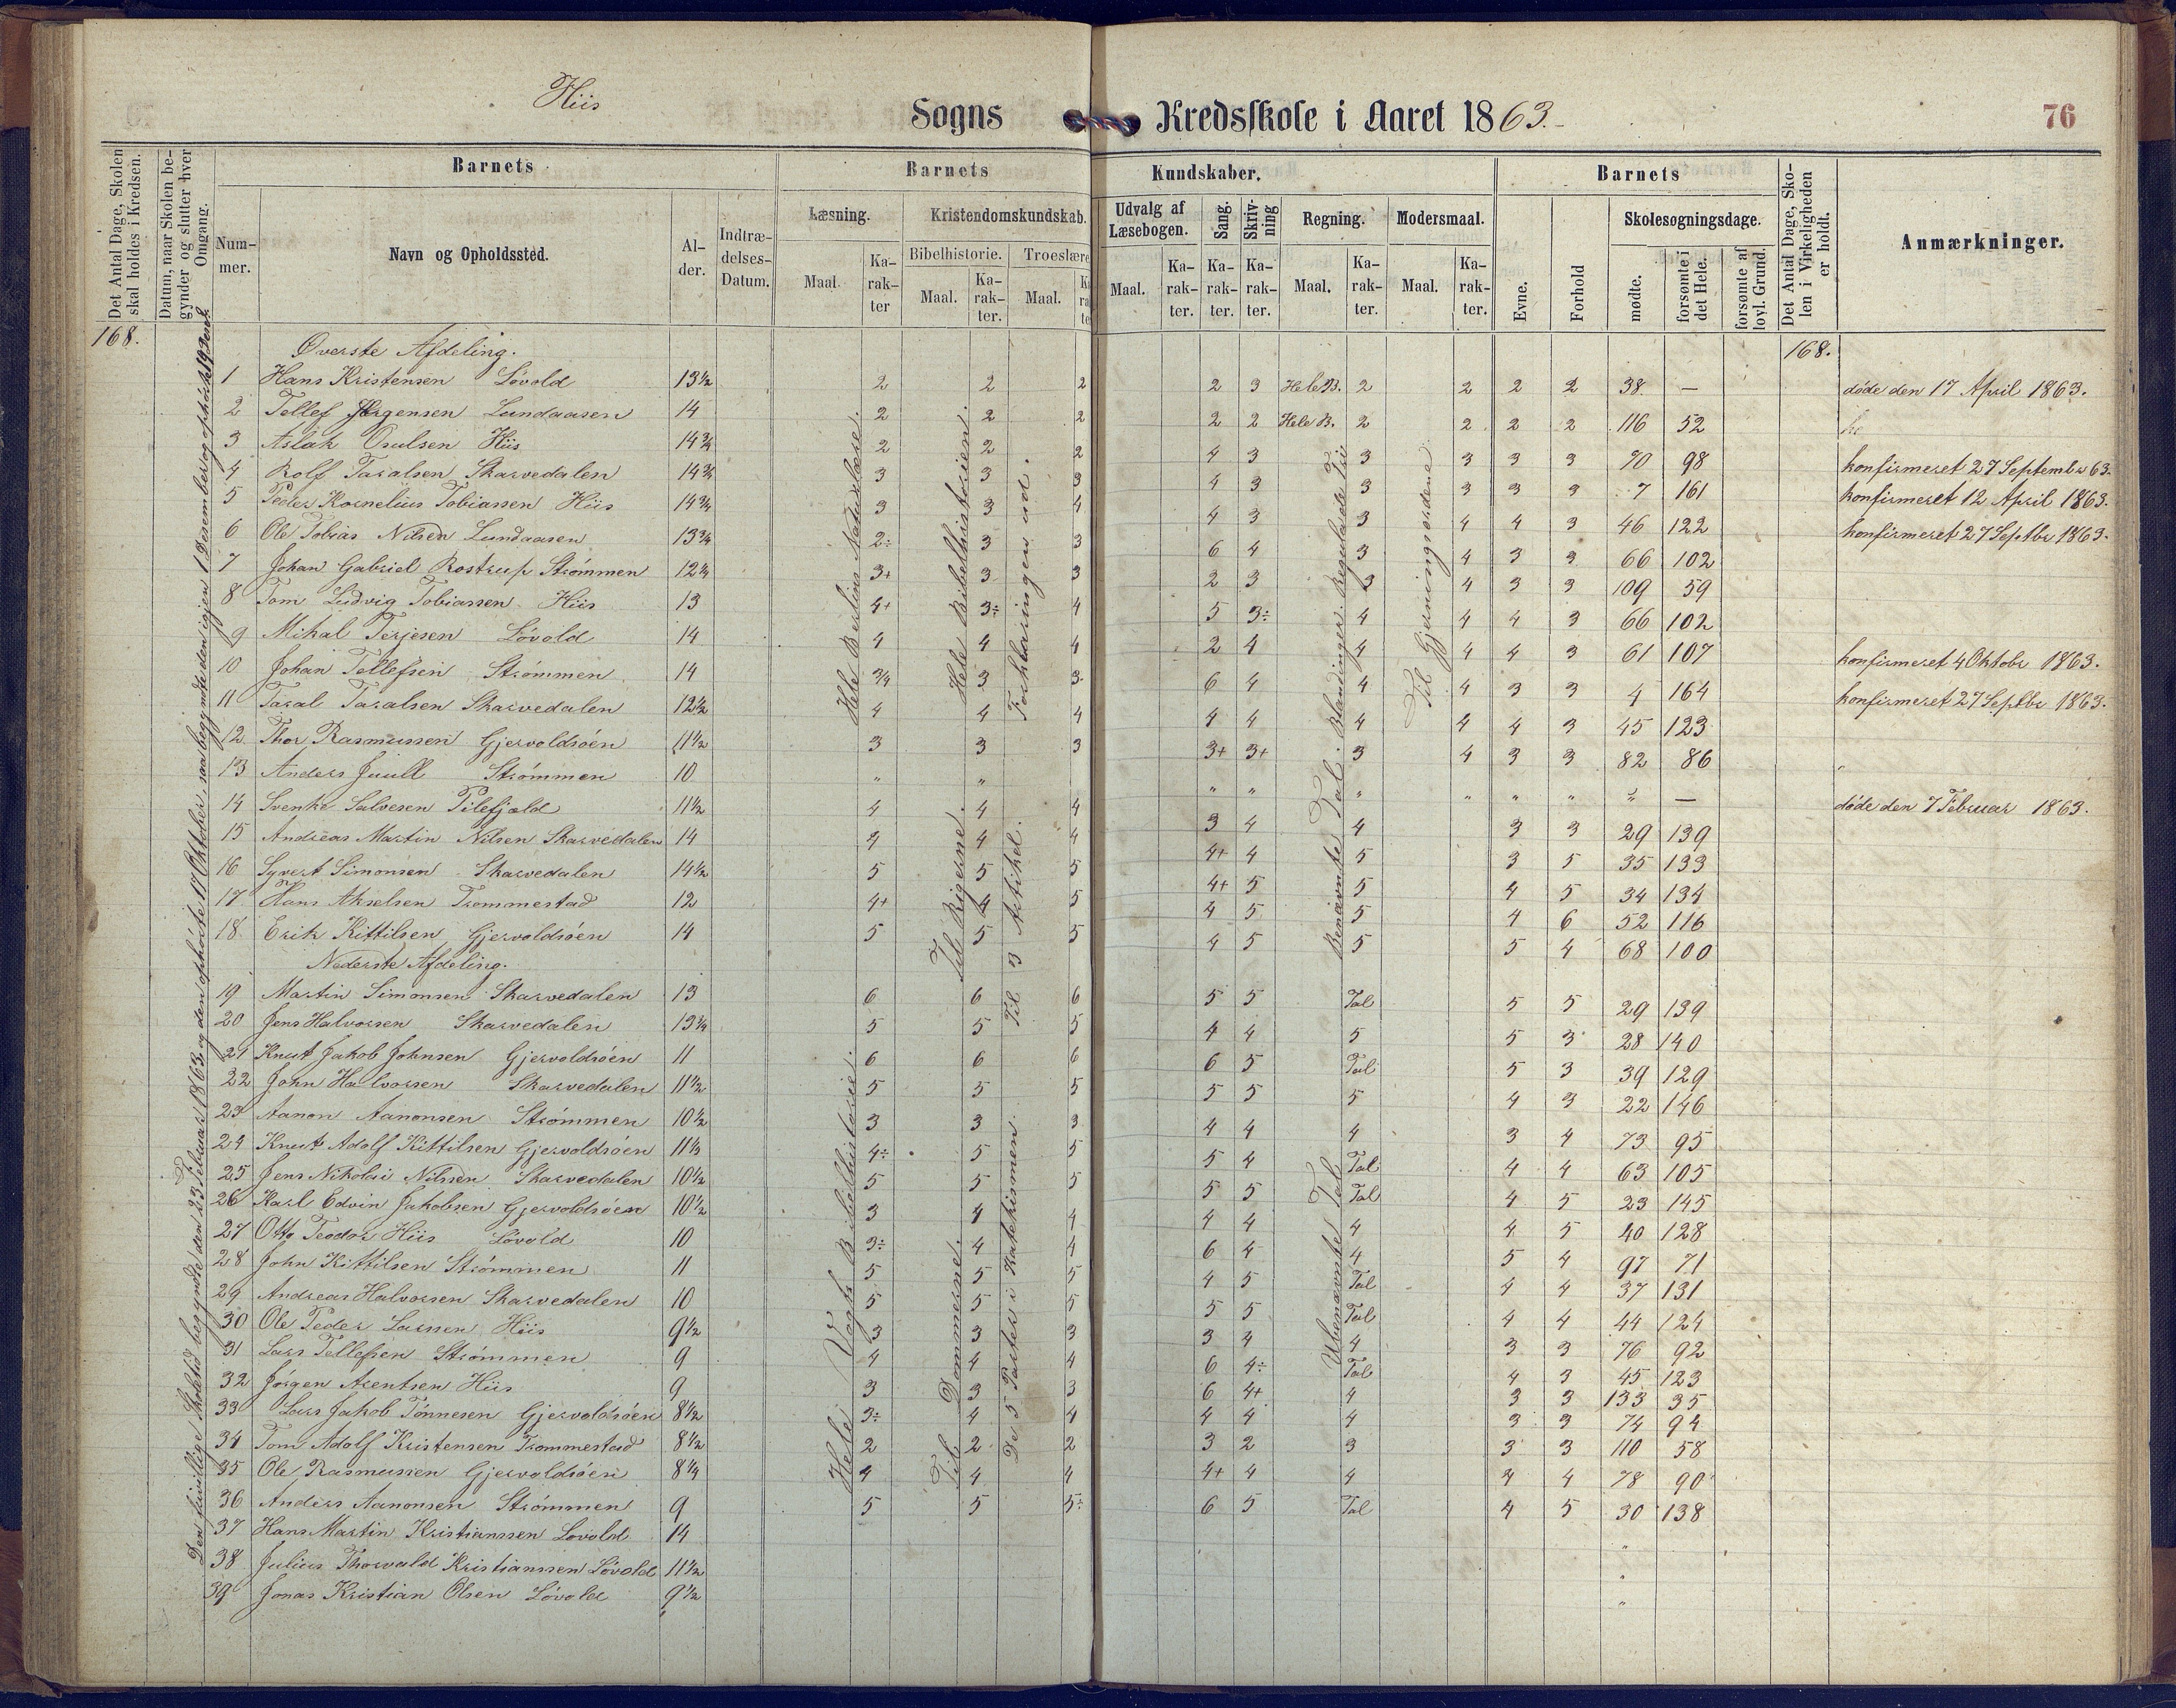 Hiis
Sogns Kredsskole i Aaret 1863.
76
Det Antal Dage, Skolen skal holdes i Kredsen.
Datum, naar Skolen begynder og slutter hver Omgang.
Barnets
Nummer.
Navn og Opholdssted.
Alder.
Indtrædelses-Datum.
Barnets Kundskaber.
Læsning.
Maal.
Karakter
Kristendomskundskab.
Bibelhistorie.
Maal.
Karakter.
Troeslære
Maal.
Udvalg af Læsebogen.
Maal.
Karakter.
Sang.
Karakter.
Skrivning
Karakter.
Regning.
Maal.
Karakter.
Modersmaal.
Maal.
Karakter.
Barnets
Evne.
Forhold
Skolesøgningsdage.
mødte.
forsømte i det Hele.
forsømte af lovl. Grund.
Det Antal Dage, Skolen i Virkeligheden er holdt.
Anmærkninger.
168.
168.
Den frivillige Skoletid begyndte den 23 Februar 1863 og den ophørte 17 Oktober, saa begyndte den igjen 1 Desember og ophørte 19 Desbr.
Hele Berslins Naturlære.
Hele Bibelhistorien.
Forklaringen ud.
Til Rigerne.
Til 3 Artikel.
Hele Vogts Bibelhistorie.
Til Dommerne.
De 5 Parter i Katekismen.
Benævnte Tal. Blandinger. Regulade Tri
Ubenævnte Tal
Til Gjerningsordene
Øverste Afdeling.
1 Hans Kristensen Løvold 13½ 2 2 2 2 3 Hele B. 2 2 2 2 38 — døde den 17 April 1863.
2 Tellef Jørgensen Lundaasen 14 2 2 2 2 2 Hele B. 2 2 2 2 116 52
3 Aslak Osulsen Hiis 14¾ 2 2 2 4 3 3 3 3 3 70 98 konfirmeret 27 Septembr 63.
4 Rolf Taralsen Skarvedalen 14¾ 3 3 3 4 3 3 3 3 3 7 161 konfirmeret 12 April 1863.
5 Peder Kornelius Tobiassen Hiis 14¾ 3 3 4 4 3 3 4 4 3 46 122 konfirmeret 27 Septbr 1863.
6 Ole Tobias Nilsen Lundaasen 13¾ 2÷ 3 3 6 4 3 4 3 3 66 102
7 Johan Gabriel Rostrup Strømmen 12¼ 3+ 3 3 2 3 3 4 3 3 109 59
8 Tom Ludvig Tobiassen Hiis 13 4+ 3÷ 4 5 3÷ 4 4 4 3 66 102
9 Mikal Terjesen Løvold 14 4 4 4 2 4 4 4 4 3 61 107 konfirmeret 4 Oktobr 1863.
10 Johan Tellefsen Strømmen 14 3/4 3 3 6 4 4 4 3 3 4 164 konfirmeret 27 Septbr 1863.
11 Taral Taralsen Skarvedalen 12½ 4 4 4 4 4 4 4 4 3 45 123
12 Thor Rasmussen Gjervoldsøen 11½ 3 3 3 3+ 3+ 3 4 3 3 82 86
13 Anders Juull Strømmen 10 " " " " " " " " " — døde den 7 Februar 1863.
14 Svenke Salvesen Pilefjæld 11½ 4 4 4 3 4 4 3 3 29 139
15 Andreas Martin Nilsen Skarvedalen 14 4 4 4 4+ 4 5 3 5 35 133
16 Syvert Simonsen Skarvedalen 14½ 5 5 5 4+ 5 5 4 5 34 134
17 Hans Akselsen Trommestad 12 4+ 4 5 4 5 5 4 6 52 116
18 Erik Kittilsen Gjervoldsøen 14 5 5 5 4 5 5 5 4 68 100
Nederste Afdeling.
19 Martin Simonsen Skarvedalen 13 6 6 6 5 5 Tal 5 5 29 139
20 Jens Halvorsen Skarvedalen 13¼ 5 5 5 4 4 5 5 3 28 140
21 Knut Jakob Johnsen Gjervoldsøen 11 6 6 6 6 5 Tal 5 3 39 129
22 John Halvorsen Skarvedalen 11½ 5 5 5 5 5 5 4 3 22 146
23 Aanon Aanonsen Strømmen 10½ 3 3 3 4 4 4 3 4 73 95
24 Knut Adolf Kittilsen Gjervoldsøen 11½ 4÷ 5 5 5 4 Tal 4 4 63 105
25 Jens Nikolai Nilsen Skarvedalen 10½ 5 5 5 5 5 Tal 4 5 23 145
26 Karl Edvin Jakobsen Gjervoldsøen 10½ 3 4 4 4 4 4 4 5 40 128
27 Otto Teodor Hiis Løvold 10 3÷ 4 4 6 4 4 5 4 97 71
28 John Kittilsen Strømmen 11 5 5 5 4 5 Tal 4 4 37 131
29 Andreas Halvorsen Skarvedalen 10 5 5 5 5 5 Tal 4 4 44 124
30 Ole Peder Larsen Hiis 9½ 3 3 3 3 4 4 3 3 76 92
31 Lars Tellefsen Strømmen 9 4 4 4 6 4÷ Tal 4 3 45 123
32 Jørgen Arentsen Hiis 9 3 3 3 6 4+ 4 3 3 133 35
33 Lars Jakob Tønnesen Gjervoldsøen 8½ 3÷ 4 4 4 4 4 3 3 74 94
34 Tom Adolf Kristensen Trommestad 8½ 2 2 2 3 2 3 3 3 110 58
35 Ole Rasmussen Gjervoldsøen 8¼ 4 4 4 4+ 4 4 4 4 78 90
36 Anders Aanonsen Strømmen 9 5 5 5÷ 6 5 Tal 4 5 30 138
37 Hans Martin Kristianssen Løvold 14 "
38 Julius Thorvald Kristianssen Løvold 11½ "
39 Jonas Kristian Olsen Løvold 9½ "